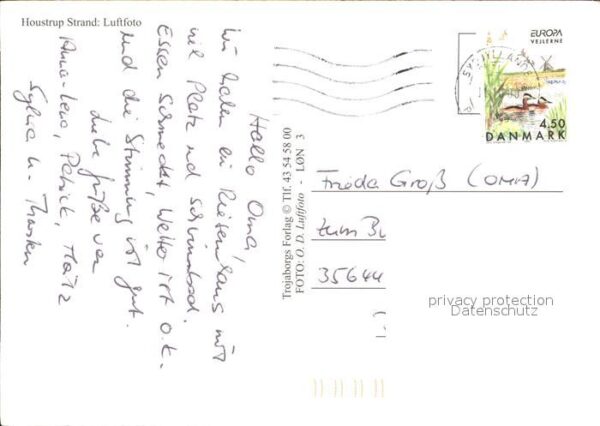 Houstrup Strand: Luftfoto
Hallo Oma!
Wir haben ein Riesenhaus mit
viel Platz und Schwimmbad.
Essen schmeckt, Wetter ist o.k.
und die Stimmung ist gut.
Liebe Grüße von
Anna-Lena, Patrick, Moritz
Sylvia u. Thorsten
Trojaborgs Forlag © Tlf. 43 54 58 00
FOTO: O. D. Luftfoto - LØN 3
EUROPA
VEJLERNE
4.50
DANMARK
Frieda Groß (OMA)
zum
35644
privacy protection
Datenschutz